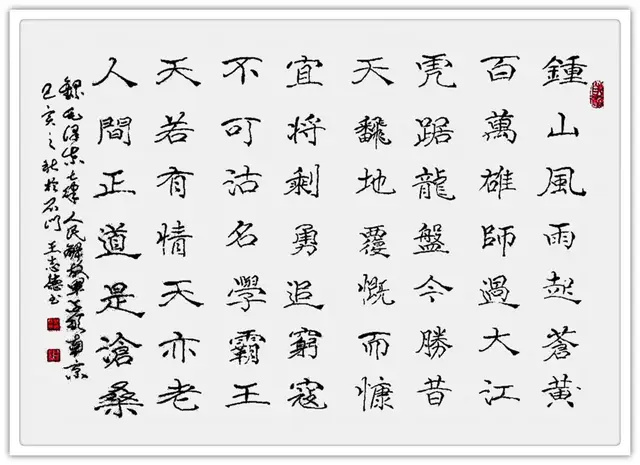 鍾山風雨起蒼黄
百萬雄師過大江
虎踞龍盤今勝昔
天飜地覆慨而慷
宜将剩勇追窮寇
不可沽名學霸王
天若有情天亦老
人間正道是滄桑
錄毛泽东七律人民解放軍占領南京
己亥之秋於石门王志德书